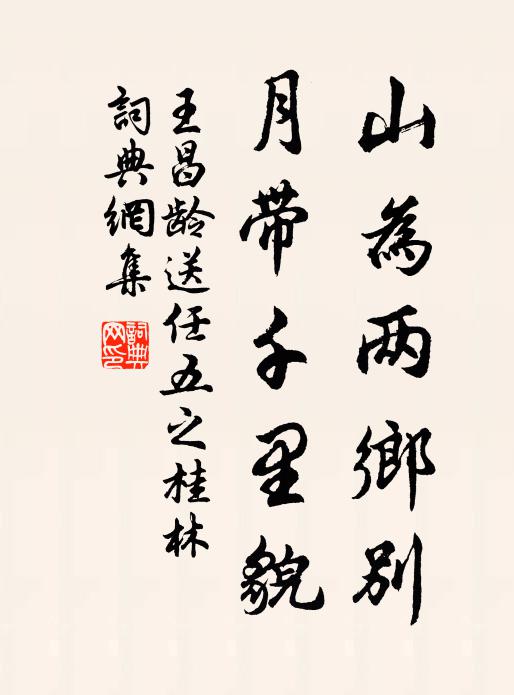 山為两鄉别
月帶千里貌
王昌龄送任五之桂林
詞典網集
詞典网印